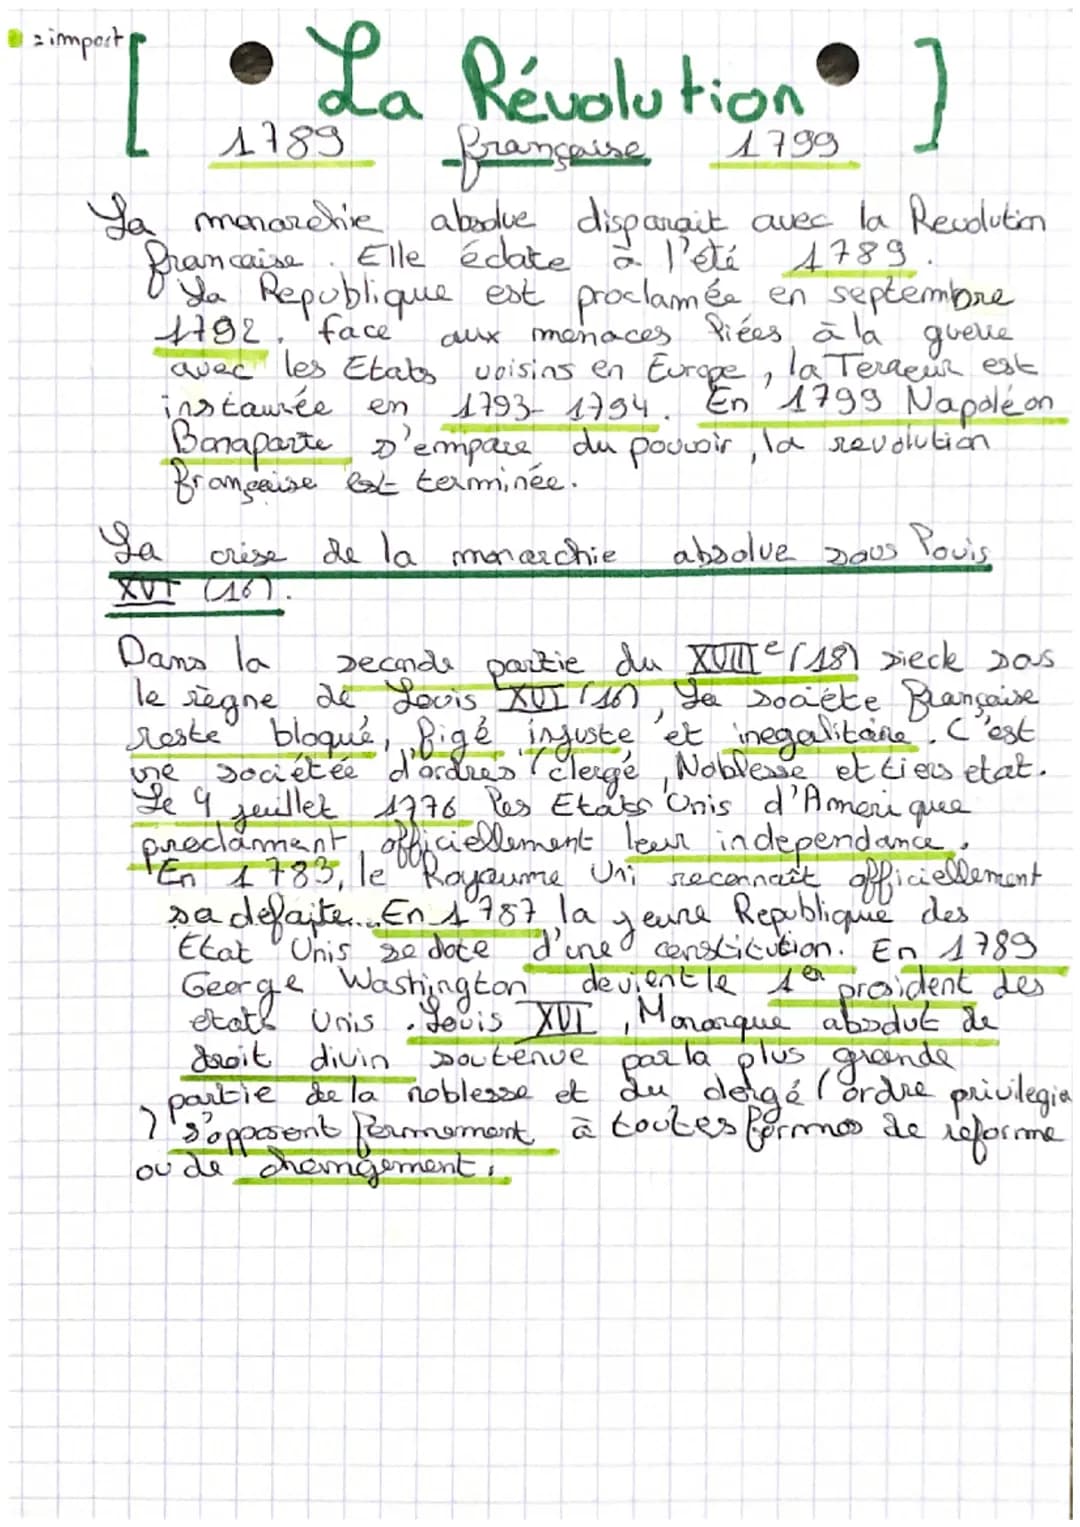 = import
[ La Révolution ]
1789 française 1799
La monarchie absolue disparait avec la Revolution
francaise. Elle éclate à l'été 1789.
La Republique est proclamée en septembre
1792. face aux menaces liées à la guerre
avec les Etats voisins en Europe, la Terreur est
instaurée en 1793-1794. En 1799 Napoléon
Bonaparte s'empare du pouvoir, la revolution
française est terminée.
La crise de la monarchie absolue sous Louis
XVI (16).
Dans la seconde partie du XVIIIe (18) siecle sous
le règne de Louis XVI (16), La sociéte Française
reste bloqué, figé injuste et inegalitaire. C'est
une sociétée d'ordres (clergé, Noblesse et tiers etat.
Le 4 juillet 1776 les Etats Unis d'Amerique
proclament officiellement leur independance.
En 1783, le Royaume Uni reconnaît officiellement
sa défaite... En 1787 la jeune Republique des
Etat Unis se dote d'une constitution. En 1789
George Washington devient le 1er président des
etats Unis. Louis XVI, Monarque absolut de
droit divin soutenue par la plus grande
partie de la noblesse et du clergé (ordre privilegie
) s'opposent fermement à toutes formes de reforme
ou de changement.